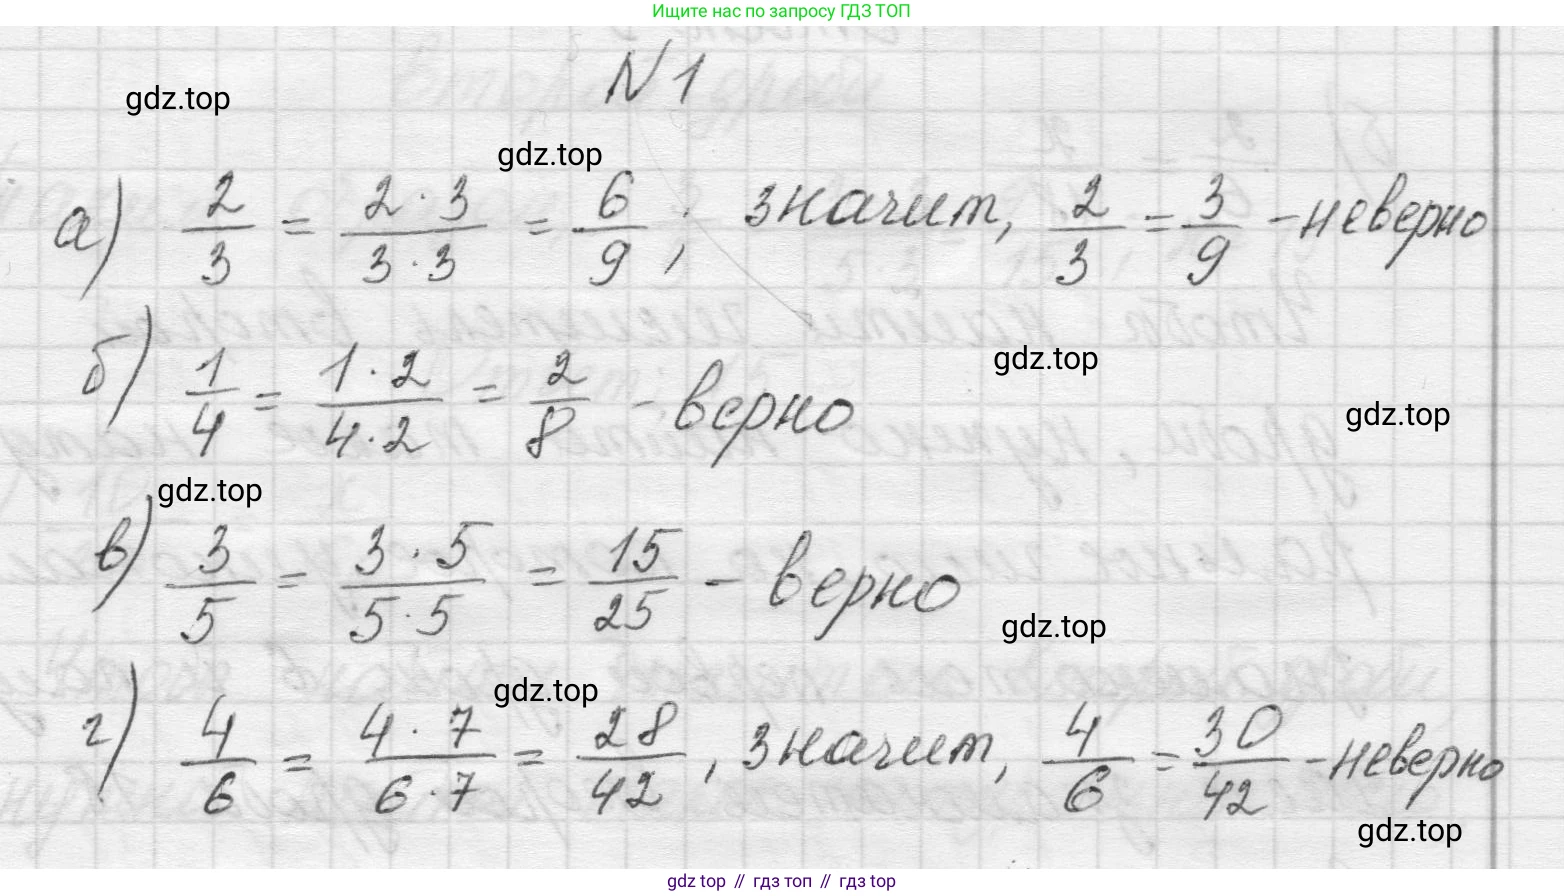 Ищите нас по запросу ГДЗ ТОП
N 1
gdz.top
gdz.top
а) 2/3 = 2·3/3·3 = 6/9, значит, 2/3 = 3/9 - неверно
gdz.top
б) 1/4 = 1·2/4·2 = 2/8 - верно
gdz.top
gdz.top
в) 3/5 = 3·5/5·5 = 15/25 - верно
gdz.top
gdz.top
г) 4/6 = 4·7/6·7 = 28/42, значит, 4/6 = 30/42 - неверно
gdz.top
gdz top // гдз топ // гдз top